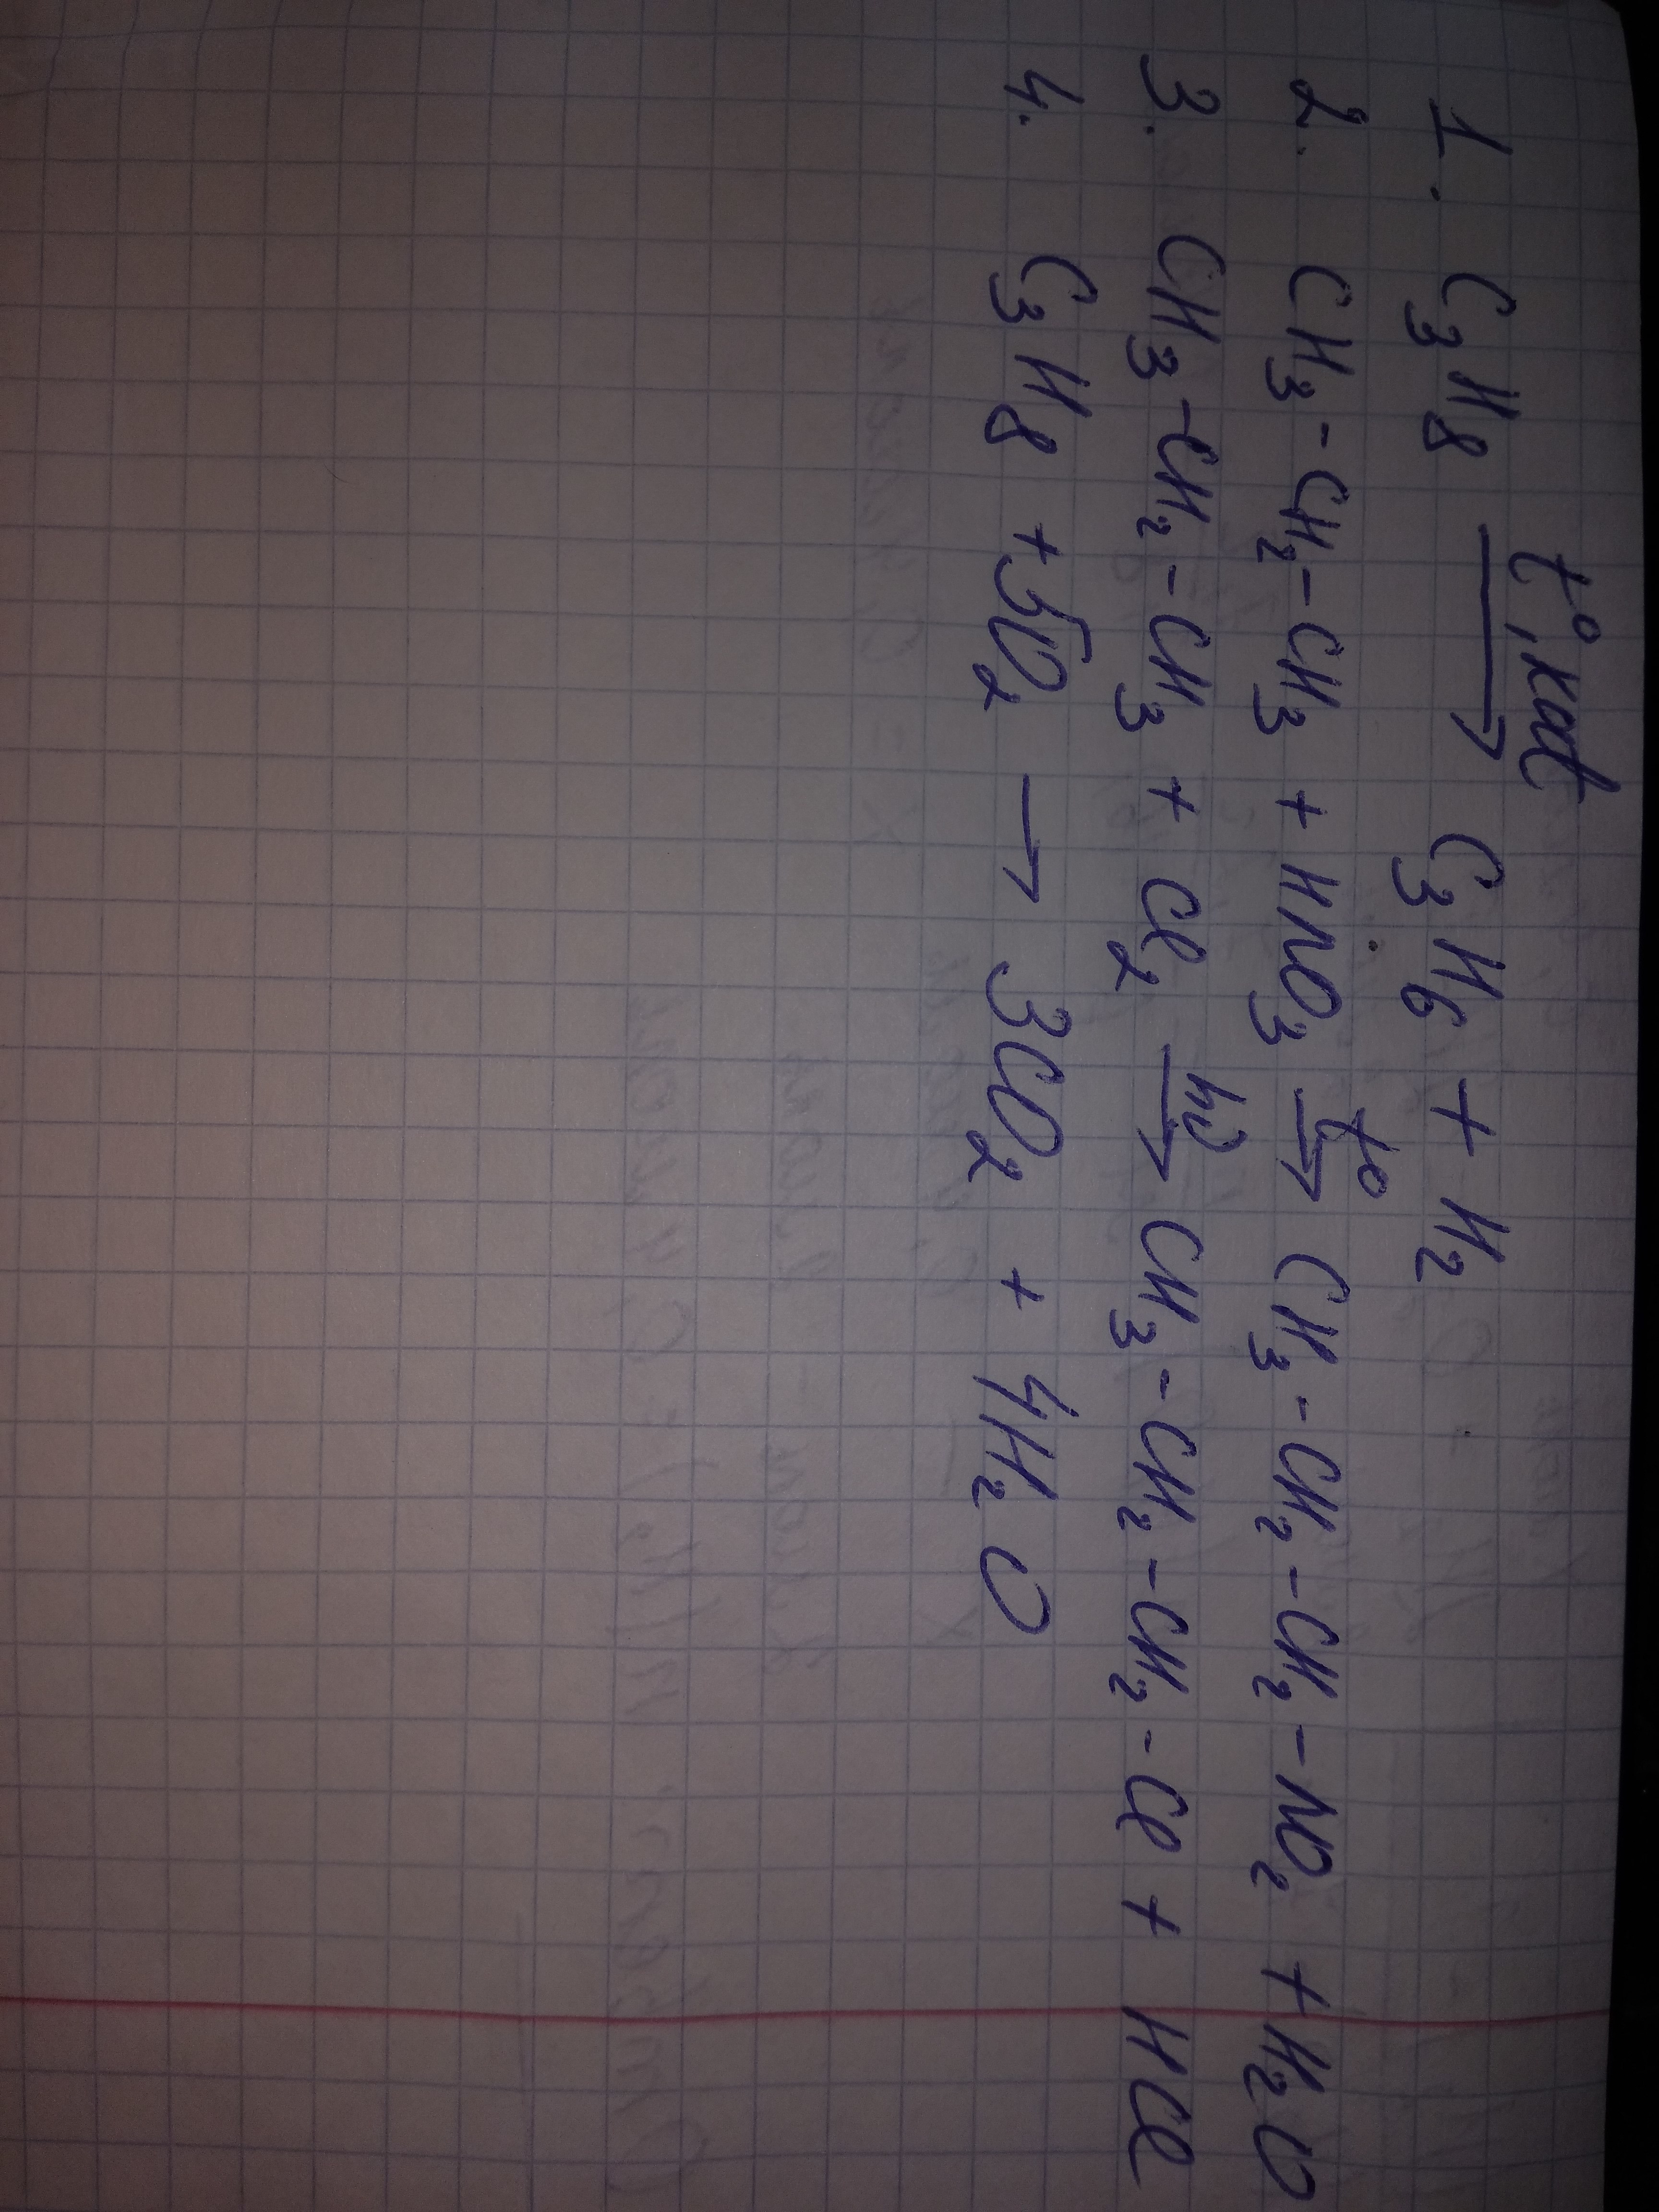 1. C₃H₈ —t°, kat→ C₃H₆ + H₂
2. CH₃-CH₂-CH₃ + HNO₃ —t°→ CH₃-CH₂-CH₂-NO₂ + H₂O
3. CH₃-CH₂-CH₃ + Cl₂ —hν→ CH₃-CH₂-CH₂-Cl + HCl
4. C₃H₈ + 5O₂ → 3CO₂ + 4H₂O